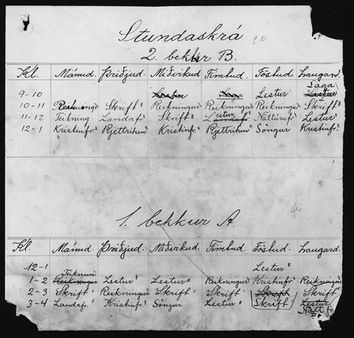 Stundaskrá
2. bekkur B.
Kl. Mánud. Þriðjud. Miðvikud. Fimtud. Föstud. Laugard.
Saga
9-10 Lestur Lestur
10-11 Skrift Reikningur Reikningur Reikningur Skrift
11-12 Teikning Landafr. Skrift Náttúrufr. Lestur
12-1 Kristinfr. Rjettritun Kristinfr. Rjettritun Söngur Kristinfr.
1. bekkur A.
Kl. Mánud. Þriðjud. Miðvikud. Fimtud. Föstud. Laugard.
12-1 Lestur
1-2 Reikningur Lestur Lestur Reikningur Kristinfr. Reikningur
2-3 Skrift Reikningur Skrift Skrift Skrift Skrift
3-4 Landafr. Kristinfr. Söngur Lestur Skrift Lestur